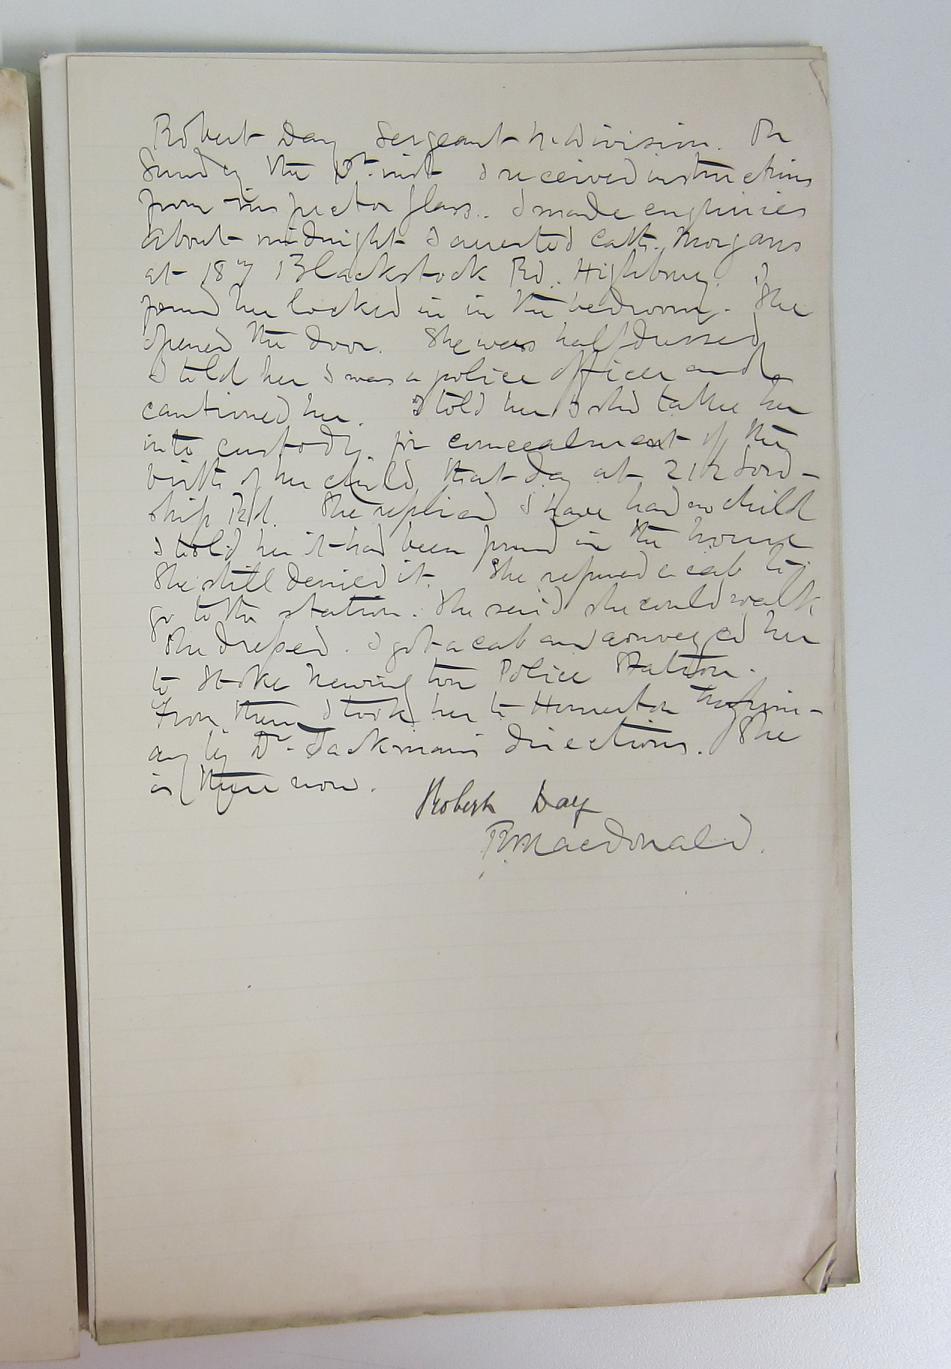 Robert Day Sergeant N. Division. On
Sunday the inst I received instructions
from inspector Glass.. I made enquiries
about midnight I arrested Cath. Morgans
at 187 Blackstock Rd. Highbury. I
found her locked in in the bedroom. She
opened the door. She was half dressed
I told her I was a police officer and
cautioned her. I told her I shd take her
into custody for concealment of the
birth of her child that day at 212 Lord-
ship Rd. She replied I have had no child
I told her it had been found in the house
She still denied it. She refused a cab to
go to the station. She said she could walk
She dressed. I got a cab and conveyed her
to Stoke Newington Police Station.
From there I took her to Homerton Infirm-
ary by Dr. Jackman's directions. She
is there now.
Robert Day
R. Macdonald.